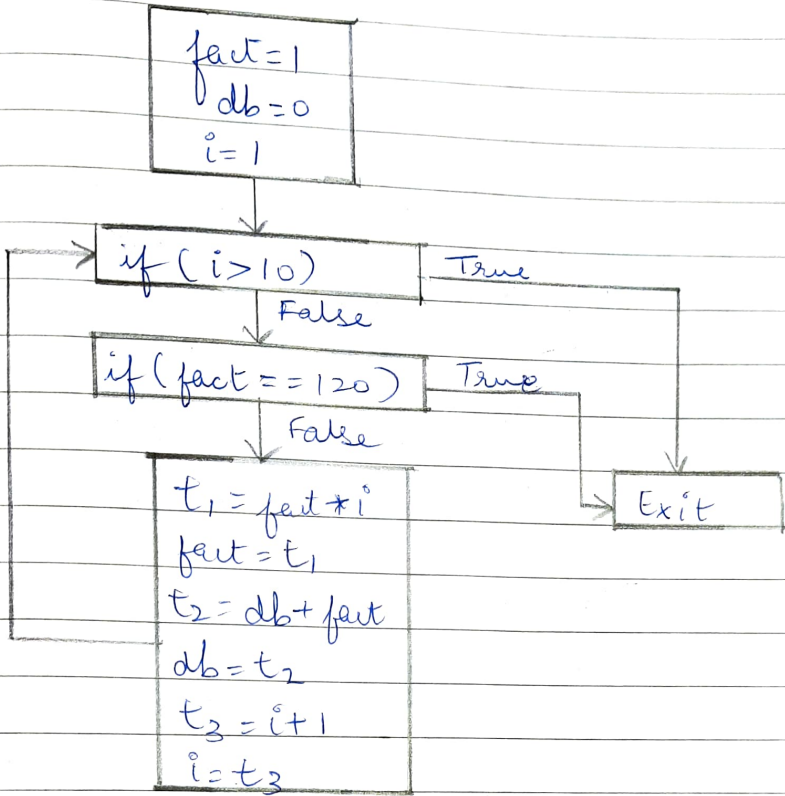 fact=1
db=0
i=1
if (i>10)
True
False
if (fact==120)
True
False
t₁=fact*i
Exit
fact=t₁
t₂=db+fact
db=t₂
t₃=i+1
i=t₃